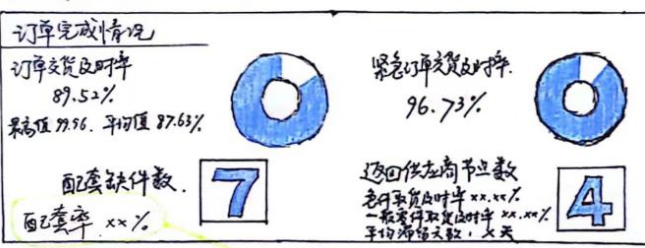 订单完成情况
订单交货及时率
89.52%
最高值 99.96. 平均值 87.63%
紧急订单交货及时率.
96.73%
配套缺件数.
7
配套率. xx%
返回供应商节点数
急件取货及时率 xx.xx%
一般零件取货及时率 xx.xx%
平均滞留天数, x天
4